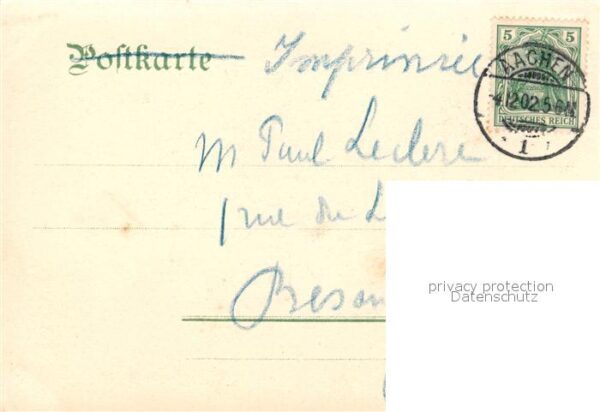 Postkarte Imprimée
5 5
AACHEN
-4.12.02.5-6N.
DEUTSCHES REICH
1
M Paul Leclerc
1 rue du L
Besan
privacy protection
Datenschutz